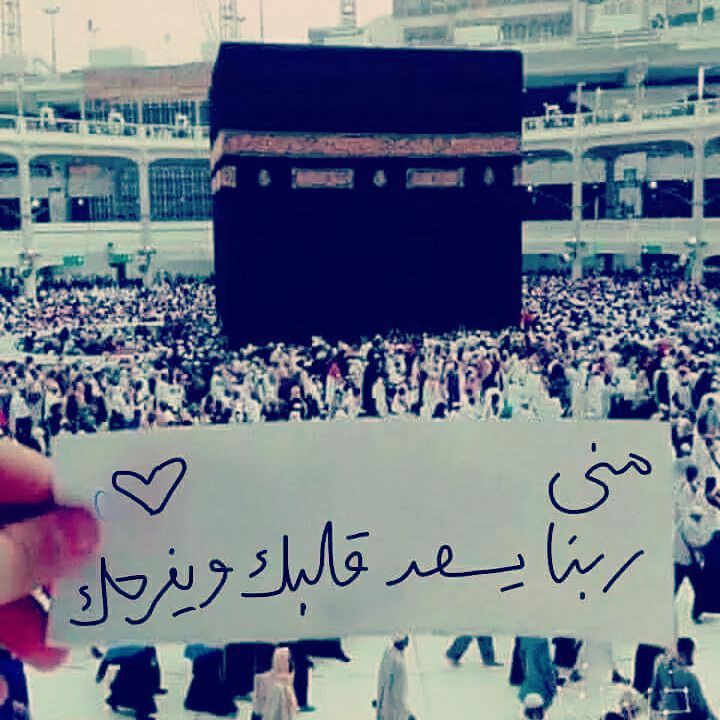 منى
ربنا يسعد قلبك ويفرحك